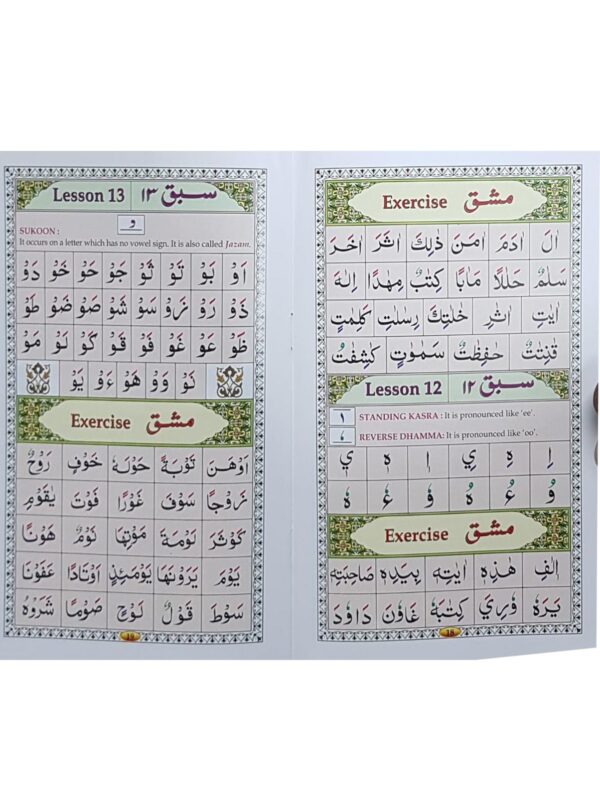 Exercise مشق
اٰلَ اٰدَمَ اٰمَنَ ذٰلِكَ اٰثَرَ اٰخَرَ
سَلٰمٌ حَلٰلًا مَاٰبًا كِتٰبٌ مِهٰدًا اِلٰهَ
اٰيٰتِ اٰثٰرِ خٰلَتِكَ رِسٰلٰتِ كَلِمٰتٍ
قٰنِتٰتٌ حٰفِظٰتٌ سَمٰوٰتٍ كٰشِفٰتُ
Lesson 12 سبق ۱۲
STANDING KASRA : It is pronounced like 'ee'.
REVERSE DHAMMA: It is pronounced like 'oo'.
Exercise مشق
اٖلٰفِ هٰذِهٖ اٰيٰتِهٖ بِيَدِهٖ صَاحِبَتِهٖ
يَرَهٗ وٗرِيَ كِتٰبَهٗ غَاوٗنَ دَاوٗدَ
18
Lesson 13 سبق ۱۳
SUKOON :
It occurs on a letter which has no vowel sign. It is also called Jazam.
اَوْ بَوْ تَوْ ثَوْ جَوْ حَوْ خَوْ دَوْ
ذَوْ رَوْ زَوْ سَوْ شَوْ صَوْ ضَوْ طَوْ
ظَوْ عَوْ غَوْ فَوْ قَوْ كَوْ لَوْ مَوْ
نَوْ وَوْ هَوْ ءَوْ يَوْ
Exercise مشق
اَوْهَنَ تَوْبَةً حَوْلَهٗ خَوْفٍ رَوْحٌ
زَوْجًا سَوْفَ غَوْرًا فَوْتَ يٰقَوْمِ
كَوْثَرَ لَوْمَةَ مَوْتِهَا نَوْمٌ هَوْنًا
يَوْمَ يَرَوْنَهَا يَوْمَئِذٍ اَوْتَادًا عَفَوْنَا
سَوْطَ قَوْلٌ لَوْحٍ صَوْمًا شَرَوْهُ
19